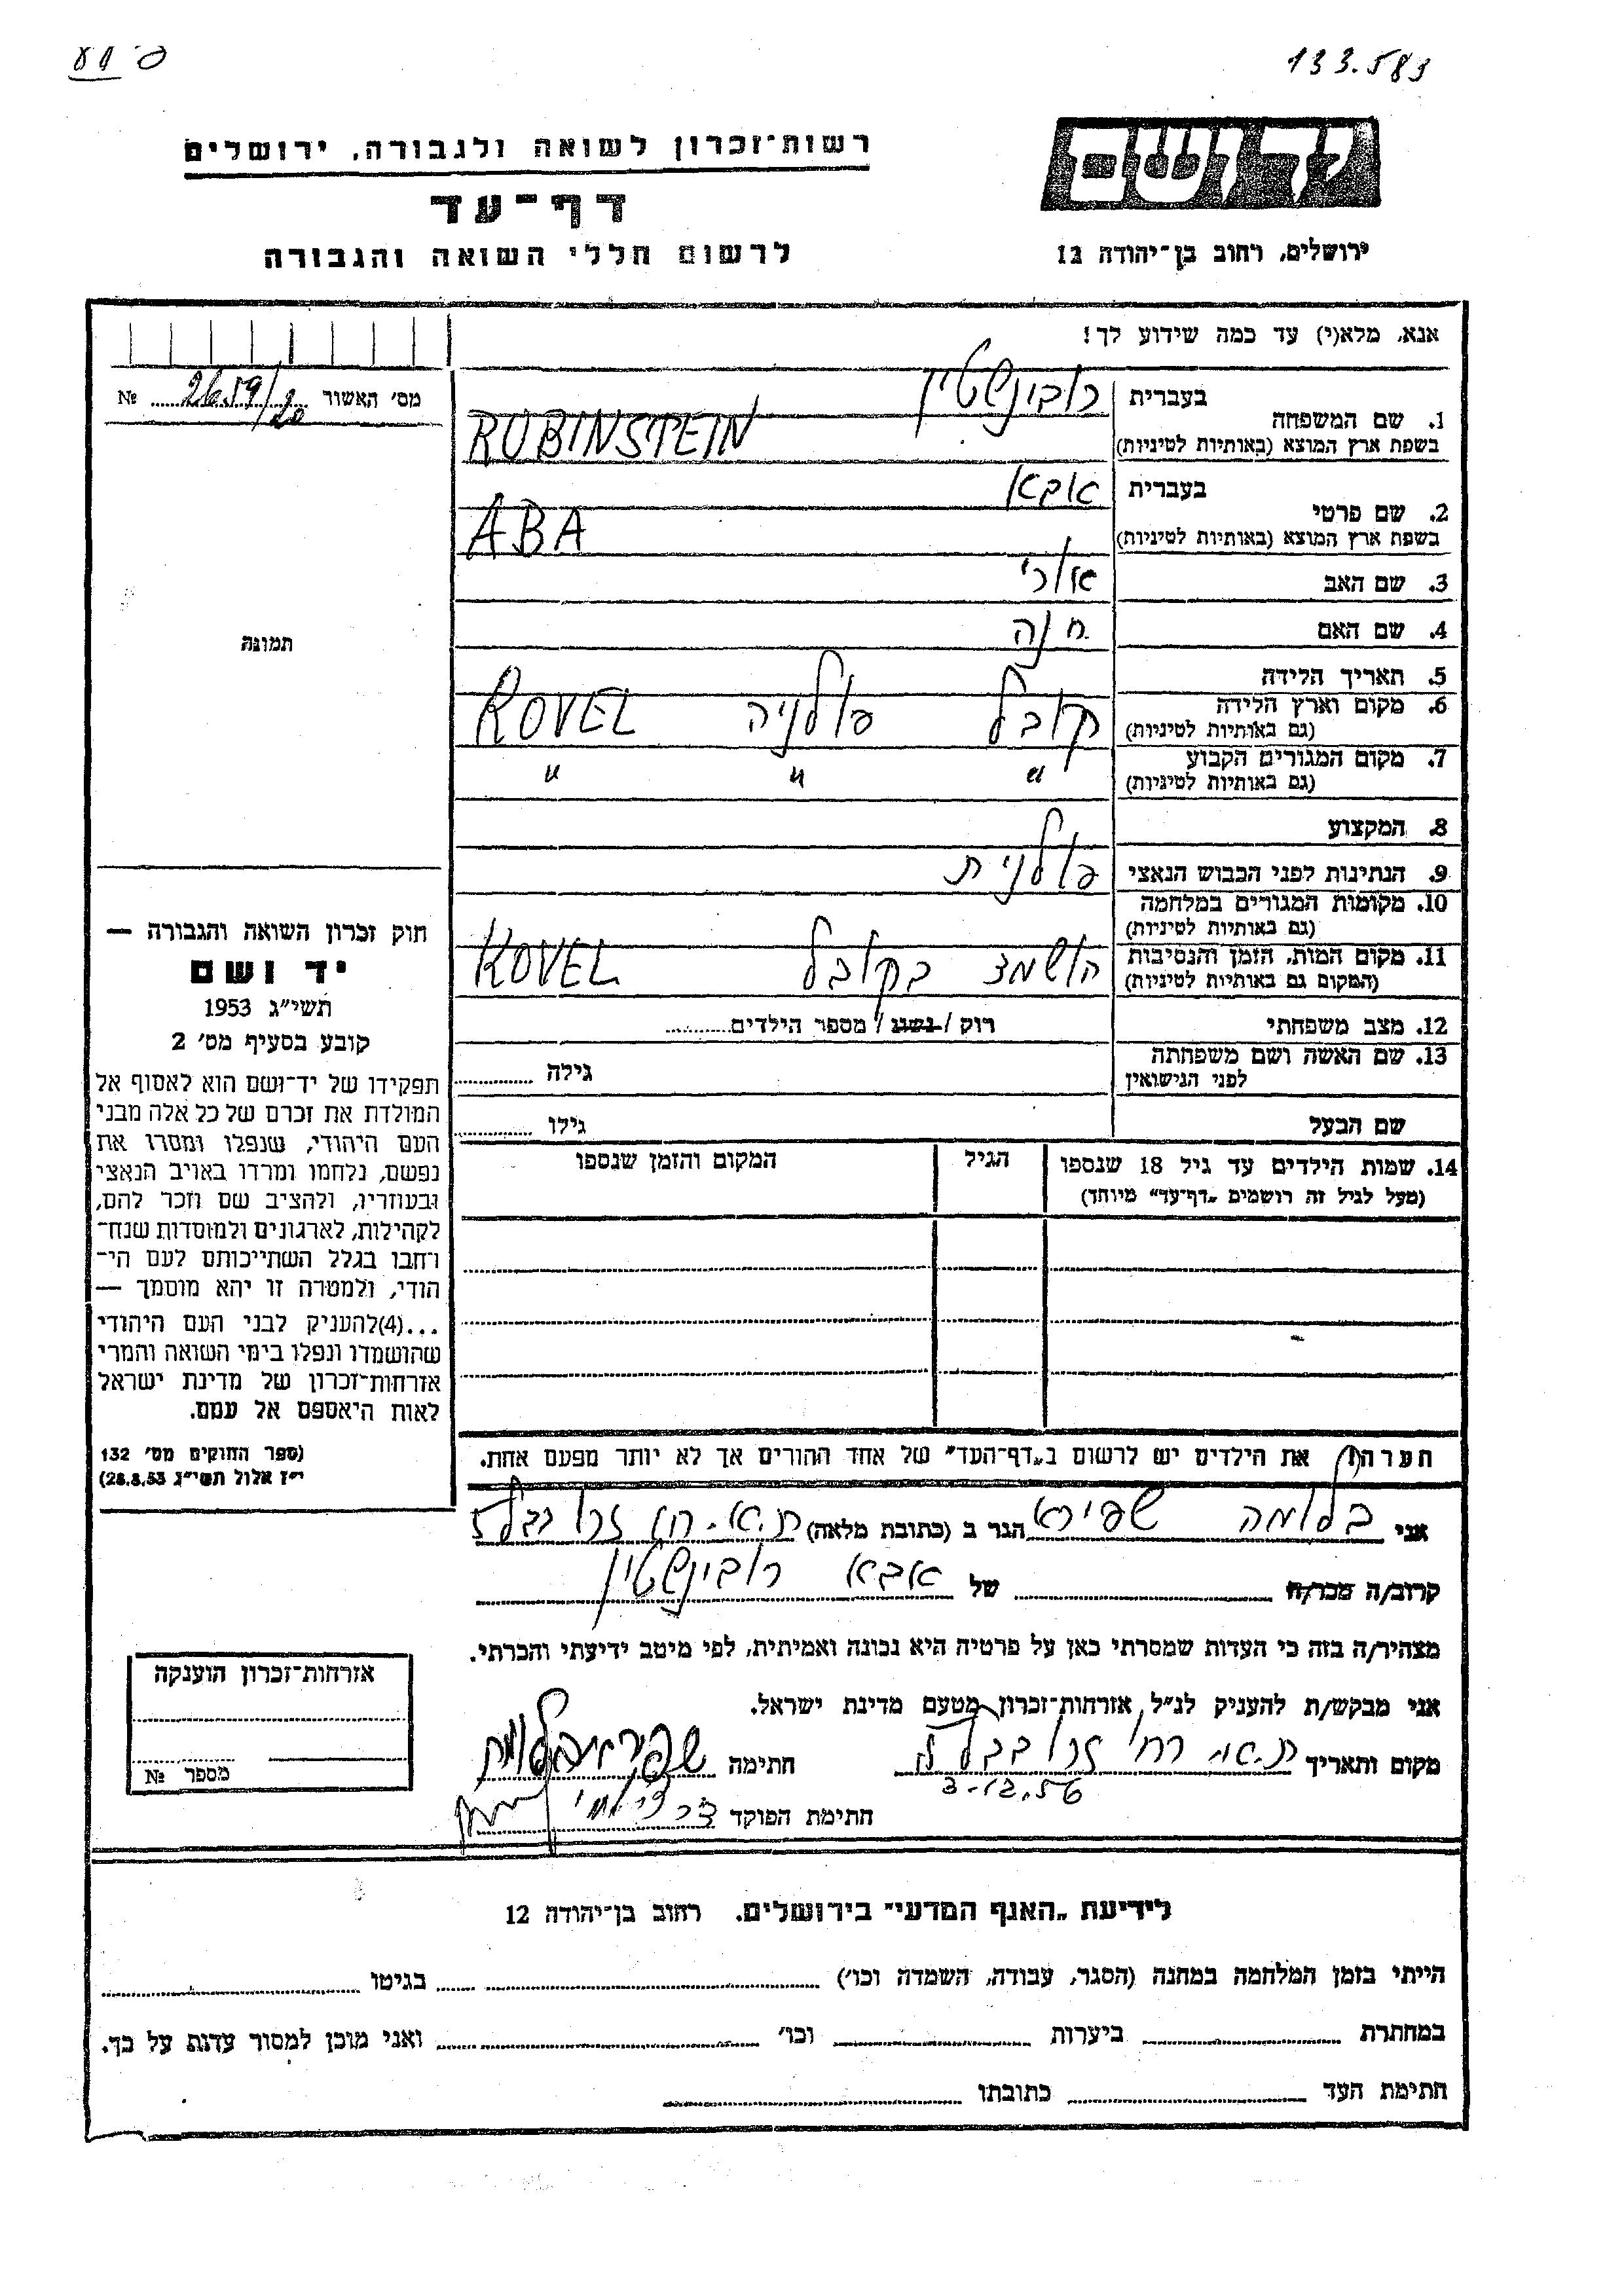 133.583
רשות־זכרון לשואה ולגבורה, ירושלים
דף־עד
לרשום חללי השואה והגבורה
ידושם
ירושלים, רחוב בן־יהודה 12
אנא, מלא(י) עד כמה שידוע לך!
מס׳ האשור 2659/20 №
1. שם המשפחה בעברית רובינשטיין
בשפת ארץ המוצא (באותיות לטיניות) RUBINSTEIN
2. שם פרטי בעברית אבא
בשפת ארץ המוצא (באותיות לטיניות) ABA
3. שם האב אורי
4. שם האם חנה
5. תאריך הלידה
6. מקום וארץ הלידה (גם באותיות לטיניות) קובל פולניה KOVEL
7. מקום המגורים הקבוע (גם באותיות לטיניות) " " "
8. המקצוע
9. הנתינות לפני הכבוש הנאצי פולנית
10. מקומות המגורים במלחמה (גם באותיות לטיניות)
11. מקום המות, הזמן והנסיבות (המקום גם באותיות לטיניות) הושמד בקובל KOVEL
12. מצב משפחתי רוק / נשוי / מספר הילדים
13. שם האשה ושם משפחתה לפני הנישואין גילה
שם הבעל גילו
14. שמות הילדים עד גיל 18 שנספו הגיל המקום והזמן שנספו
(מעל לגיל זה רושמים „דף־עד״ מיוחד)
תמונה
חוק זכרון השואה והגבורה —
יד ושם
תשי״ג 1953
קובע בסעיף מס׳ 2
תפקידו של יד־ושם הוא לאסוף אל
המולדת את זכרם של כל אלה מבני
העם היהודי, שנפלו ומסרו את
נפשם, נלחמו ומרדו באויב הנאצי
ובעוזריו, ולהציב שם וזכר להם,
לקהילות, לארגונים ולמוסדות שנח־
רחבו בגלל השתייכותם לעם הי־
הודי, ולמטרה זו יהא מוסמך —
...(4)להעניק לבני העם היהודי
שהושמדו ונפלו בימי השואה והמרי
אזרחות־זכרון של מדינת ישראל
לאות היאספם אל עמם.
(ספר החוקים מס׳ 132
י״ז אלול תשי״ג 28.8.53)
הערה: את הילדים יש לרשום ב„דף־העד״ של אחד ההורים אך לא יותר מפעם אחת.
אני בלומה שפירא הגר ב (כתובת מלאה) ת.א. רח זרובבל
קרוב/ה מכר/ה של אבא רובינשטיין
מצהיר/ה בזה כי העדות שמסרתי כאן על פרטיה היא נכונה ואמיתית, לפי מיטב ידיעתי והכרתי.
אני מבקש/ת להעניק לנ״ל אזרחות־זכרון מטעם מדינת ישראל.
מקום ותאריך ת.א. רח׳ זרובבל חתימה שפירא בלומה
3-12.56
חתימת הפוקד
אזרחות־זכרון הוענקה
מספר №
לידיעת „האגף המדעי״ בירושלים. רחוב בן־יהודה 12
הייתי בזמן המלחמה במחנה (הסגר, עבודה, השמדה וכו׳) בגיטו
במחתרת ביערות וכו׳ ואני מוכן למסור עדות על כך.
חתימת העד כתובתו